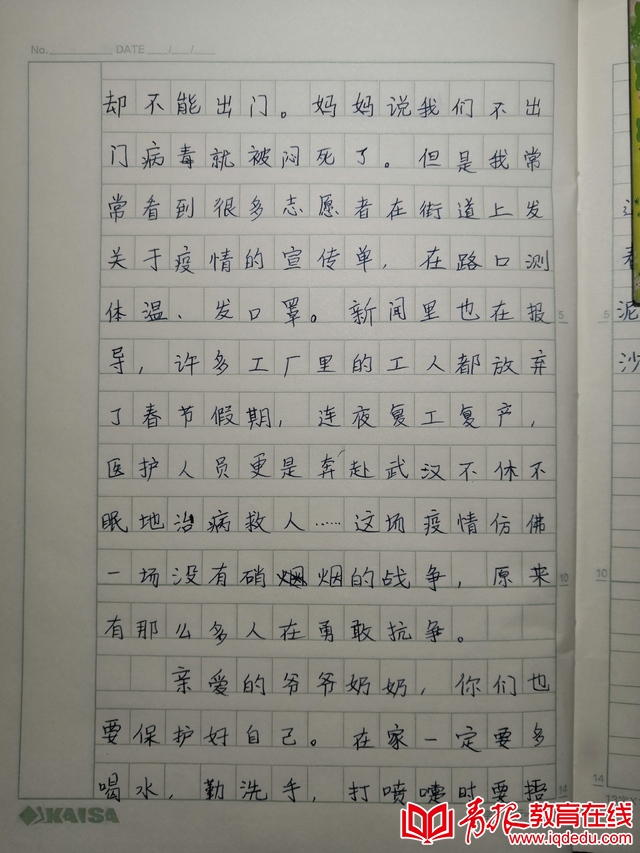 No. DATE / /
却不能出门。妈妈说我们不出
门病毒就被闷死了。但是我常
常看到很多志愿者在街道上发
关于疫情的宣传单，在路口测
体温、发口罩。新闻里也在报
导，许多工厂里的工人都放弃
了春节假期，连夜复工复产，
医护人员更是奔赴武汉不休不
眠地治病救人……这场疫情仿佛
一场没有硝烟的战争，原来
有那么多人在勇敢抗争。
亲爱的爷爷奶奶，你们也
要保护好自己。在家一定要多
喝水，勤洗手，打喷嚏时要捂
KAISA
5
10
14
5
10
14
泥
沙
青报教育在线
www.iqdedu.com